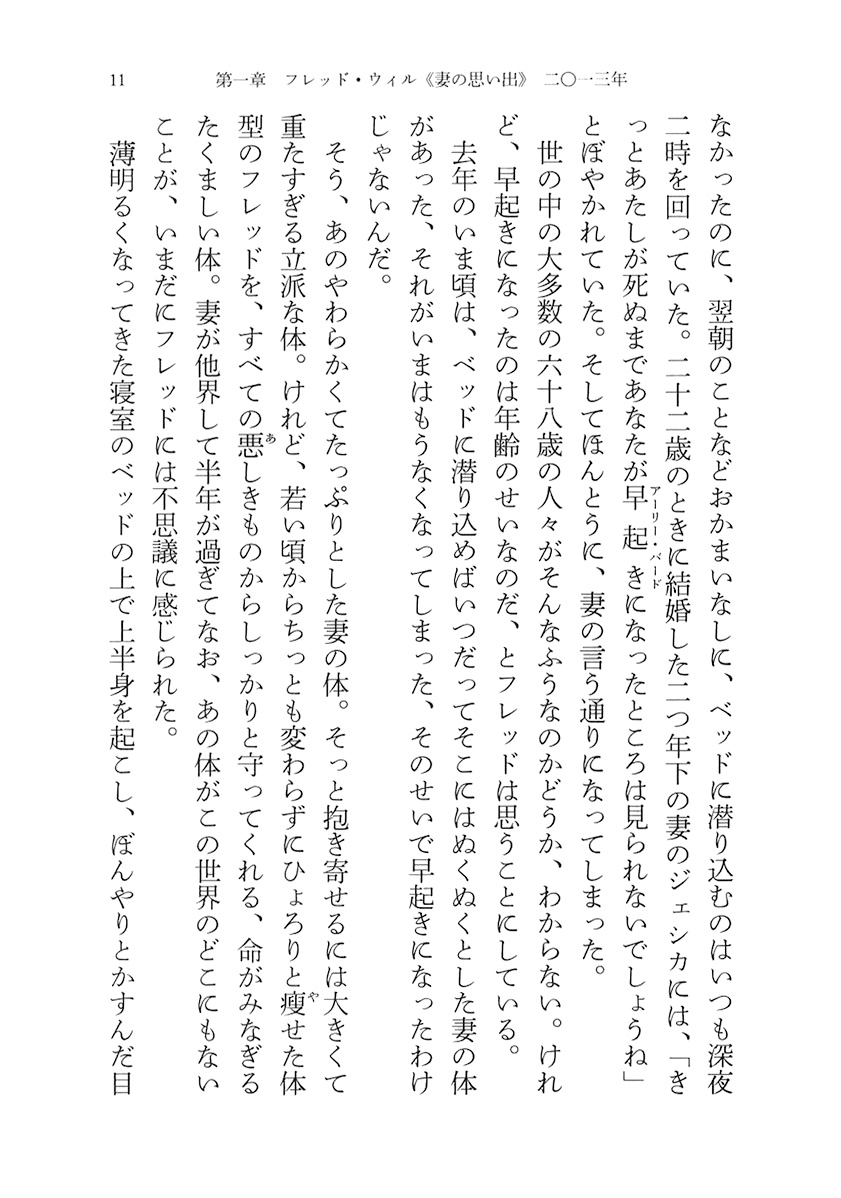 11
第一章　フレッド・ウィル《妻の思い出》　二〇一三年
なかったのに、翌朝のことなどおかまいなしに、ベッドに潜り込むのはいつも深夜
二時を回っていた。二十二歳のときに結婚した二つ年下の妻のジェシカには、「き
っとあたしが死ぬまであなたが早起きになったところは見られないでしょうね」
アーリー・バード
とぼやかれていた。そしてほんとうに、妻の言う通りになってしまった。
世の中の大多数の六十八歳の人々がそんなふうなのかどうか、わからない。けれ
ど、早起きになったのは年齢のせいなのだ、とフレッドは思うことにしている。
去年のいま頃は、ベッドに潜り込めばいつだってそこにはぬくぬくとした妻の体
があった、それがいまはもうなくなってしまった、そのせいで早起きになったわけ
じゃないんだ。
そう、あのやわらかくてたっぷりとした妻の体。そっと抱き寄せるには大きくて
重たすぎる立派な体。けれど、若い頃からちっとも変わらずにひょろりと瘦せた体
や
型のフレッドを、すべての悪しきものからしっかりと守ってくれる、命がみなぎる
あ
たくましい体。妻が他界して半年が過ぎてなお、あの体がこの世界のどこにもない
ことが、いまだにフレッドには不思議に感じられた。
薄明るくなってきた寝室のベッドの上で上半身を起こし、ぼんやりとかすんだ目